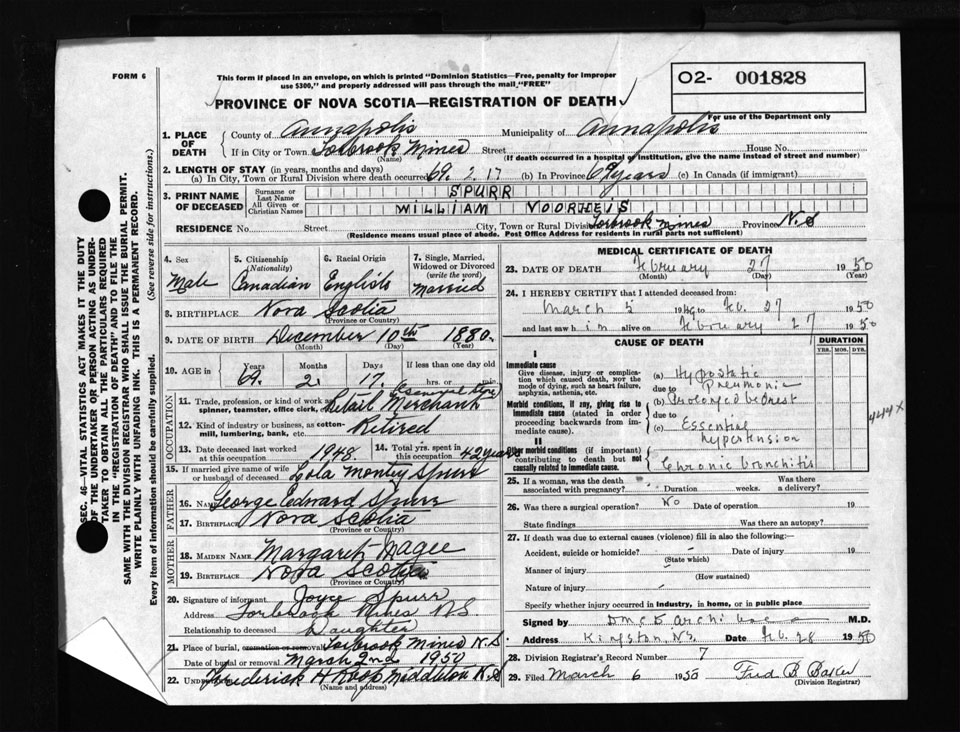 FORM 6
This form if placed in an envelope, on which is printed "Dominion Statistics—Free, penalty for improper
use $300," and properly addressed will pass through the mail "FREE"
O2- 001828
For use of the Department only
PROVINCE OF NOVA SCOTIA—REGISTRATION OF DEATH
1. PLACE OF DEATH
County of Annapolis Municipality of Annapolis
If in City or Town Torbrook Mines Street House No.
(Name) (If death occurred in a hospital or institution, give the name instead of street and number)
2. LENGTH OF STAY (in years, months and days)
(a) In City, Town or Rural Division where death occurred 69. 2. 17 (b) In Province 69 years (c) In Canada (if immigrant)
3. PRINT NAME OF DECEASED
Surname or Last Name SPURR
All Given or Christian Names WILLIAM VOORHEIS
RESIDENCE No. Street City, Town or Rural Division Torbrook Mines Province N.S
(Residence means usual place of abode. Post Office Address for residents in rural parts not sufficient)
4. Sex Male
5. Citizenship (Nationality) Canadian
6. Racial Origin English
7. Single, Married, Widowed or Divorced (write the word) Married
8. BIRTHPLACE Nova Scotia
(Province or Country)
9. DATE OF BIRTH December 10th 1880.
(Month) (Day) (Year)
10. AGE in Years 69. Months 2. Days 17. If less than one day hrs. or min.
OCCUPATION
11. Trade, profession, or kind of work as spinner, teamster, office clerk, Retail Merchant (General Store)
12. Kind of industry or business, as cotton-mill, lumbering, bank, etc. Retired
13. Date deceased last worked at this occupation 1948
14. Total yrs. spent in this occupation 42 years
15. If married give name of wife or husband of deceased Lola Monley Spurr
FATHER
16. Name George Edward Spurr
17. BIRTHPLACE Nova Scotia
(Province or Country)
MOTHER
18. MAIDEN NAME Margaret Magee
19. BIRTHPLACE Nova Scotia
(Province or Country)
20. Signature of informant Joyce Spurr
Address Torbrook Mines N.S.
Relationship to deceased Daughter
21. Place of burial, cremation or removal Torbrook Mines N.S
Date of burial or removal March 2nd 1950
22. Undertaker Frederick H Roop Middleton N.S
(Name and address)
MEDICAL CERTIFICATE OF DEATH
23. DATE OF DEATH February 27 1950
(Month) (Day) (Year)
24. I HEREBY CERTIFY that I attended deceased from:
March 5 1949 to Feb. 27 1950
and last saw him alive on February 27 1950
CAUSE OF DEATH DURATION
YRS. MOS. DYS.
I
Immediate cause
Give disease, injury or complication which caused death, NOT the mode of dying, such as heart failure, asphyxia, asthenia, etc.
(a) Hypostatic Pneumonia
due to
Morbid conditions, if any, giving rise to immediate cause (stated in order proceeding backwards from immediate cause).
(b) Prolonged bedrest
due to
(c) Essential hypertension
444 x
II
Other morbid conditions (if important) contributing to death but not causally related to immediate cause.
Chronic bronchitis
25. If a woman, was the death associated with pregnancy? Duration weeks. Was there a delivery?
26. Was there a surgical operation? No Date of operation 19
State findings Was there an autopsy?
27. If death was due to external causes (violence) fill in also the following:
Accident, suicide or homicide? Date of injury 19
(State which)
Manner of injury
(How sustained)
Nature of injury
Specify whether injury occurred in industry, in home, or in public place
Signed by M.D.
Address Kingston, N.S. Date Feb. 28 1950
28. Division Registrar's Record Number 7
29. Filed March 6 1950 Fred B Barker
(Division Registrar)
SEC. 46—VITAL STATISTICS ACT MAKES IT THE DUTY
OF THE UNDERTAKER OR PERSON ACTING AS UNDER-
TAKER TO OBTAIN ALL THE PARTICULARS REQUIRED
IN THE "REGISTRATION OF DEATH" AND TO FILE THE
SAME WITH THE DIVISION REGISTRAR WHO SHALL ISSUE THE BURIAL PERMIT.
WRITE PLAINLY WITH UNFADING INK. THIS IS A PERMANENT RECORD.
Every item of information should be carefully supplied. (See reverse side for instructions.)